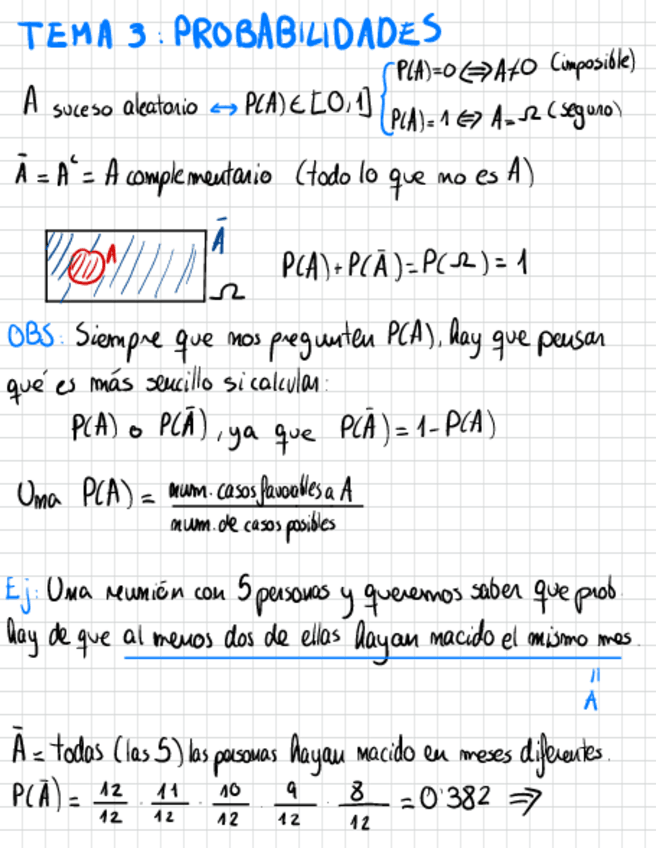 TEMA 3: PROBABILIDADES
A suceso aleatorio ↔ P(A) ∈ [0,1]
P(A)=0 ⇔ A≠0 (imposible)
P(A)=1 ⇔ A=Ω (seguro)
Ā = Aᶜ = A complementario (todo lo que no es A)
A
Ā
Ω
P(A)+P(Ā)=P(Ω)=1
OBS: Siempre que nos pregunten P(A), hay que pensar
qué es más sencillo si calcular:
P(A) o P(Ā), ya que P(Ā)=1-P(A)
Una P(A) = num. casos favorables a A / num. de casos posibles
Ej: Una reunión con 5 personas y queremos saber que prob.
hay de que al menos dos de ellas hayan nacido el mismo mes.
=
A
Ā = todas (las 5) las personas hayan nacido en meses diferentes.
P(Ā) = 12/12 · 11/12 · 10/12 · 9/12 · 8/12 = 0'382 ⇒